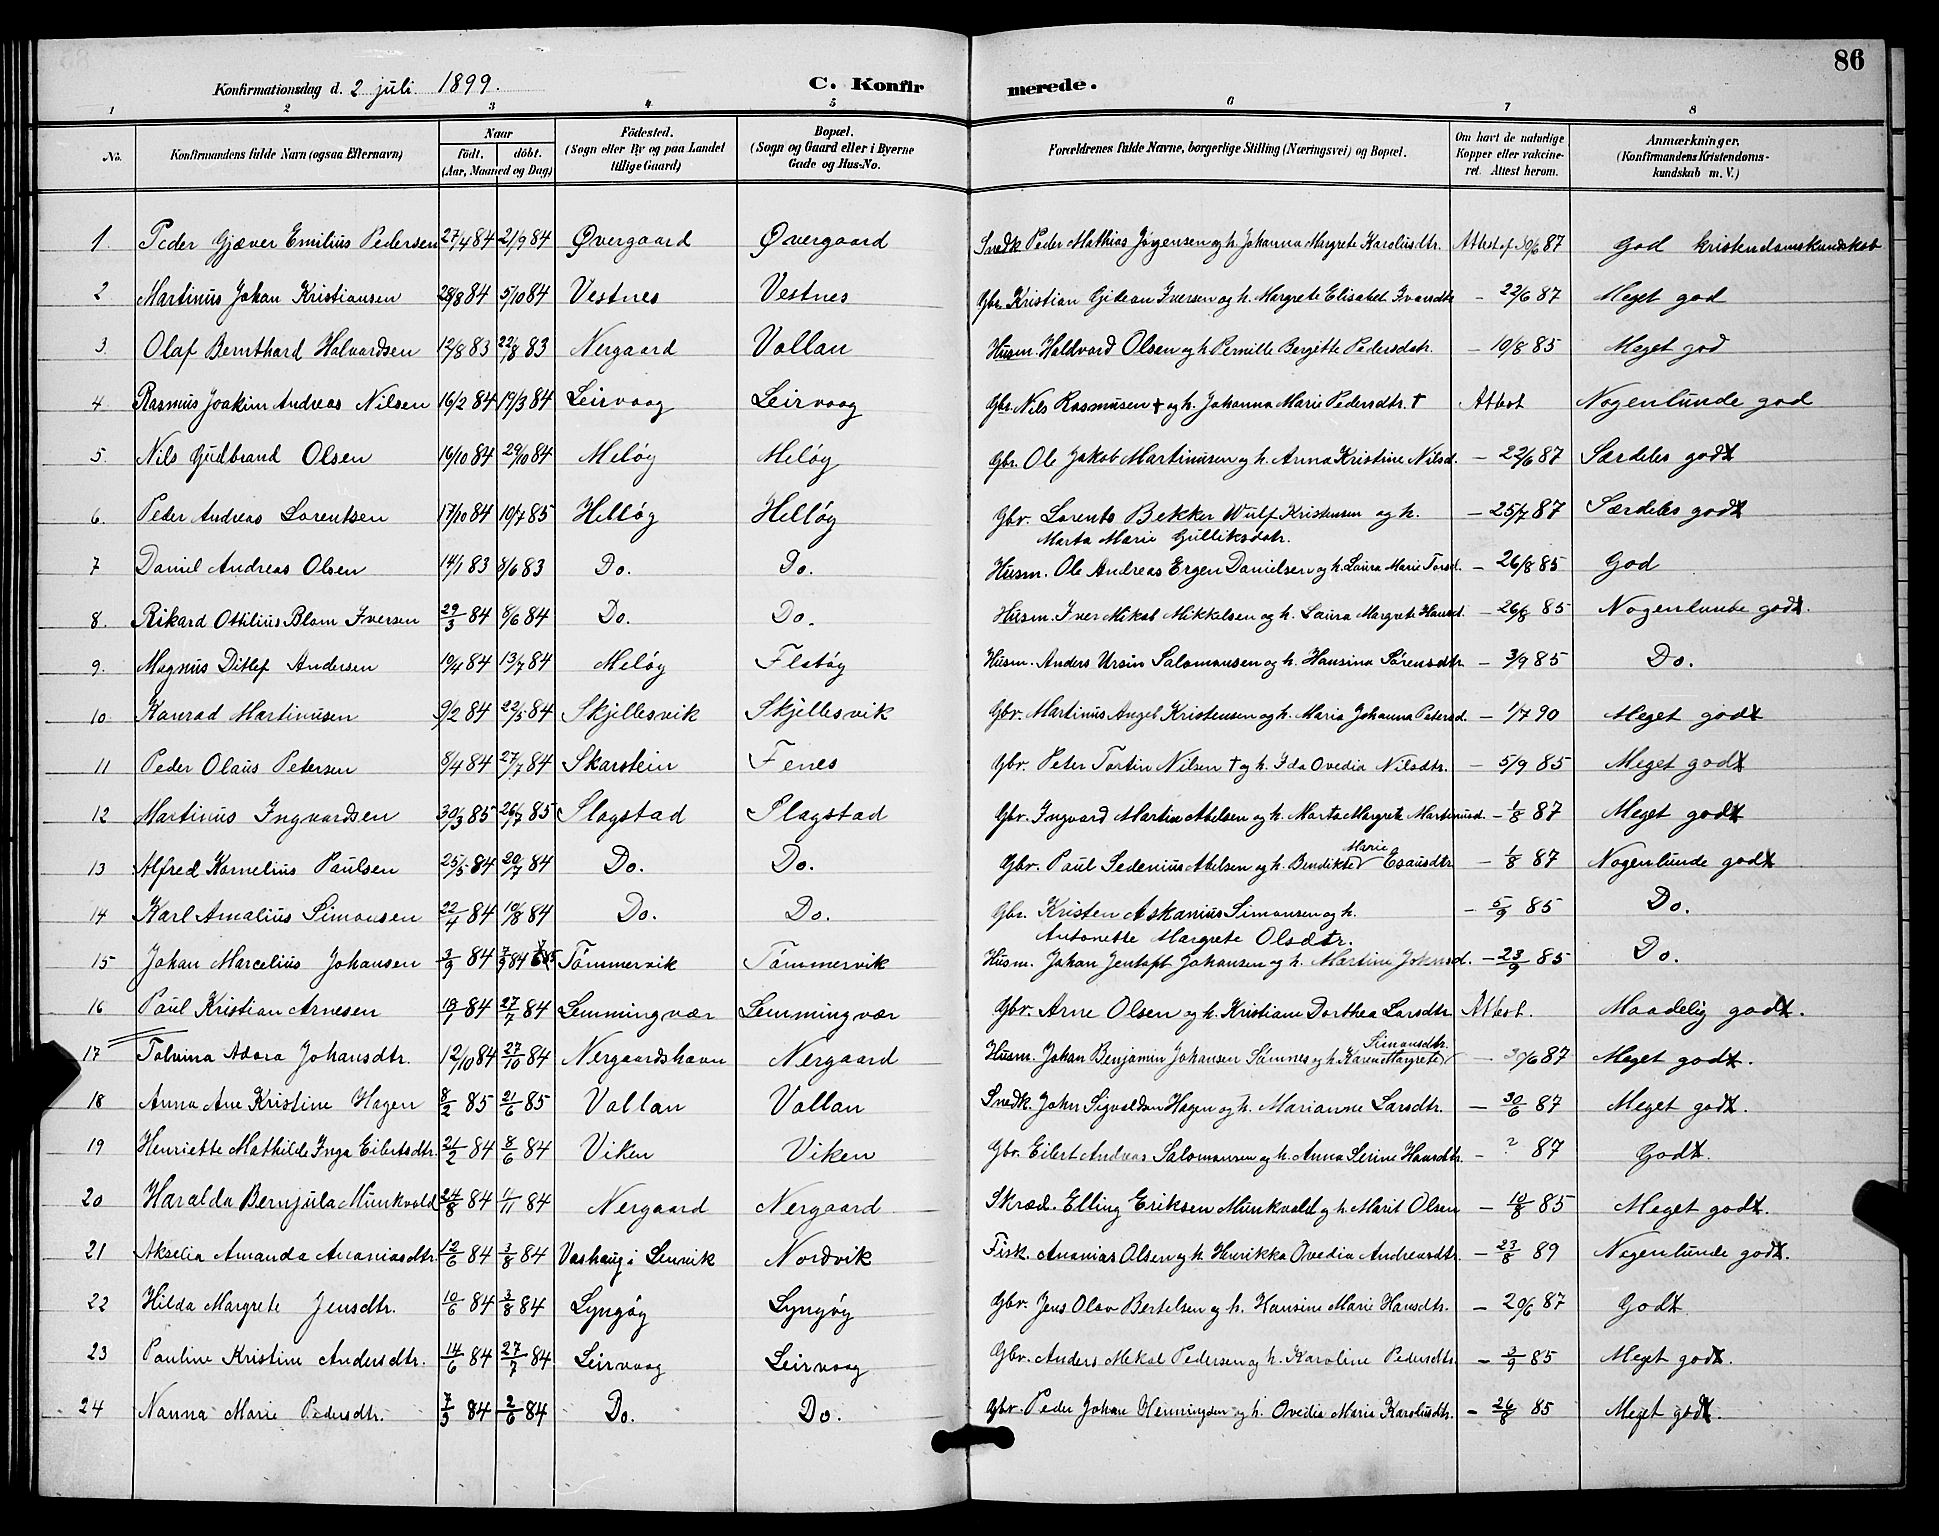 86
Konfirmationsdag d. 2 juli 1899. C. Konfirmerede.
1 2 3 4 5 6 7 8
No. Konfirmandens fulde Navn (ogsaa Efternavn) Naar födt. döbt. (Aar, Maaned og Dag) Födested. (Sogn eller By og paa Landet tillige Gaard) Bopæl. (Sogn og Gaard eller i Byerne Gade og Hus-No. Forældrenes fulde Navne, borgerlige Stilling (Næringsvei) og Bopæl. Om havt de naturlige Kopper eller vakcineret. Attest herom. Anmærkninger, (Konfirmandens Kristendomskundskab m. V.)
1. Peder Gjæver Emilius Pedersen 27/4 84 21/9 84 Øvergaard Øvergaard Snedk. Peder Mathias Jørgensen og h. Johanna Margrete Karolusdtr. Attest af 30/6 87 God kristendomskundskab
2 Martinus Johan Kristiansen 28/8 84 5/10 84 Vestnes Vestnes Gbr. Kristian Gidean Iversen og h. Margrete Elisabet Iversdtr - 22/6 87 Meget god
3. Olaf Bernthard Halvardsen 12/8 83 22/8 83 Nergaard Vollan Husm. Haldvard Olsen og h. Pernille Bergitte Pedersdatr. - 19/8 85 Meget god
4 Rasmus Joakim Andreas Nilsen 16/2 84 19/3 84 Leirvaag Leirvaag Gbr. Nils Rasmussen † og h. Johanna Marie Pedersdtr. † Attest Nogenlunde god
5. Nils Gudbrand Olsen 16/10 84 29/10 84 Meløy Meløy Gbr. Ole Jakob Martinusen og h. Anna Kristine Nilsd. - 22/6 87 Særdeles godt
6. Peder Andreas Lorentsen 17/10 84 19/7 85 Helløy Helløy Gbv. Lorents Bekker Wulf Kristensen og h. - 25/7 87 Særdeles godt
Marta Marie Gulliksdatr.
7 Daniel Andreas Olsen 14/1 83 8/6 83 Do. Do. Husm. Ole Andreas Ergen Danielsen og h. Laura Marie Torsd. - 26/8 85 God
8. Rikard Ottilius Blom Iversen 29/3 84 8/6 84 Do. Do. Husm. Iver Mikal Mikkelsen og h. Laura Margrete Hansd. - 26/8 85 Nogenlunde godt.
9. Magnus Ditlef Andersen 19/4 84 13/7 84 Meløy Flatøy Husm. Anders Ursin Salomonsen og h. Hansina Sörensdtr. - 3/9 85 Do.
10 Konrad Martinusen 9/2 84 22/5 84 Skjellesvik Skjellesvik Gbv. Martinus Angel Kristensen og h. Maria Johanna Petersd. - 1/7 90 Meget godt
11 Peder Olaus Petersen 8/4 84 27/7 84 Skarstein Fenes Gbv. Peter Tortin Nilsen † og h. Ida Ovedia Nilsdtr. - 5/9 85 Meget godt
12 Martinus Ingvardsen 30/3 85 26/7 85 Slagstad Slagstad Gbv. Ingvard Martin Abelsen og h. Marta Margrete Martinusd. - 1/8 87 Meget godt
13 Alfred Kornelius Paulsen 25/5 84 20/7 84 Do. Do. Gbv. Paul Sedenius Abelsen og h. Bendikte Marie Esausdtr - 1/8 87 Nogenlunde godt
14 Karl Amalius Simonsen 22/4 84 10/8 84 Do. Do. Gbr. Kristen Askanius Simonsen og h. - 5/9 85 Do.
Antonette Margrete Olsdtr.
15 Johan Marcelius Johansen 3/9 84 7/9 84 Tömmervik Tömmervik Husm. Johan Jentoft Johansen og h. Martine Johnsd. - 23/9 85 Do.
16 Paul Kristian Arnesen 18/1 84 27/7 84 Lemmingvær Lemmingvær Gbv. Arne Olsen og h. Kristiane Dorthea Larsdtr Attest. Maadelig godt.
17 Tolvina Adora Johansdtr. 12/10 84 27/10 84 Nergaardshavn Nergaard Husm. Johan Benjamin Johansen Sömnes og h. Karen Margrete Simonsdtr. - 30/6 87 Meget godt.
18 Anna Ane Kristine Hagen 8/2 85 21/6 85 Vollan Vollan Snedk. John Sigvaldsen Hagen og h. Marianne Larsdtr. - 30/6 87 Meget godt.
19 Henriette Mathilde Inga Eilertsdtr. 21/2 84 8/6 84 Viken Viken Gbv. Eilert Andreas Salomonsen og h. Anna Serine Hansdtr. - ? 87 Godt.
20 Haralda Bernjula Munkvold 24/8 84 4/11 84 Nergaard Nergaard Skræd. Elling Eriksen Munkvold og h. Marit Olsen - 10/8 85 Meget godt.
21 Akselia Amanda Ananiasdtr. 12/6 84 3/8 84 Vashaug i Lenvik Nordvik Fisk. Ananias Olsen og h. Henrikka Ovedia Andreasdtr. - 23/8 89 Nogenlunde godt.
22 Hilda Margrete Jensdtr. 10/6 84 3/8 84 Lyngøy Lyngøy Gbv. Jens Olav Bertelsen og h. Hansine Marie Hansdtr. - 20/6 87 Godt
23 Pauline Kristine Andersdtr. 14/6 84 27/7 84 Leirvaag Leirvaag Gbv. Anders Mekal Pedersen og h. Karoline Pedersdtr. - 3/9 85 Meget godt.
24 Nanna Marie Pedersdtr. 7/3 84 2/6 84 Do. Do. Gbv. Peder Johan Henningsen og h. Ovedia Maria Karolusdtr. - 26/8 85 Meget godt.